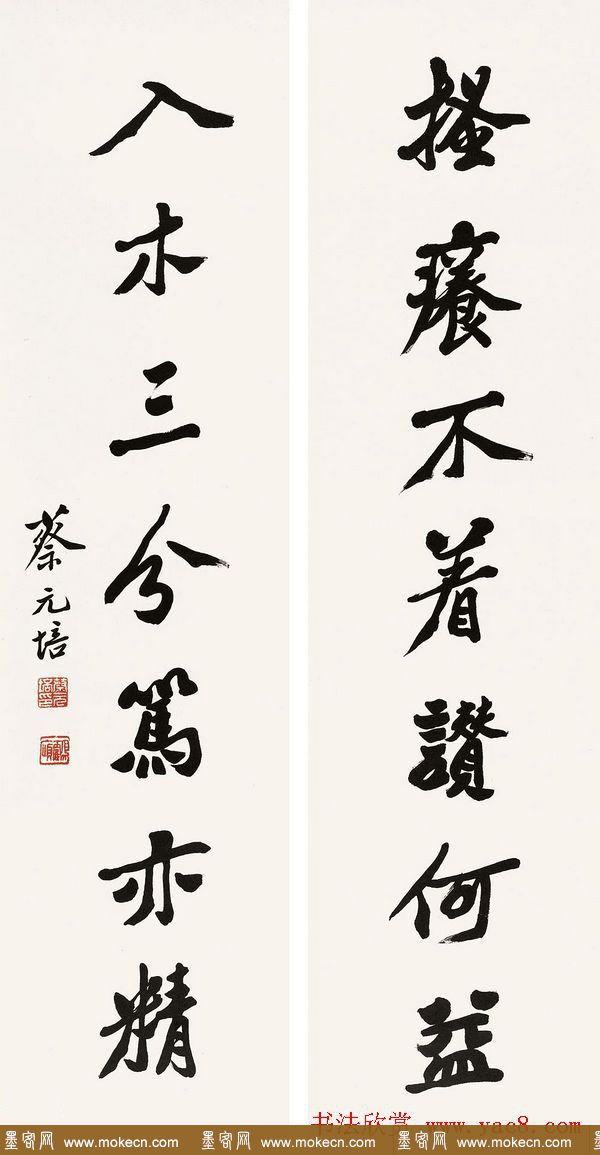 搔癢不着讚何益
入木三分罵亦精
蔡元培
蔡元培印
书法欣赏 www.yac8.com
墨客网 www.mokecn.com 墨客网 www.mokecn.com 墨客网 www.mokecn.com